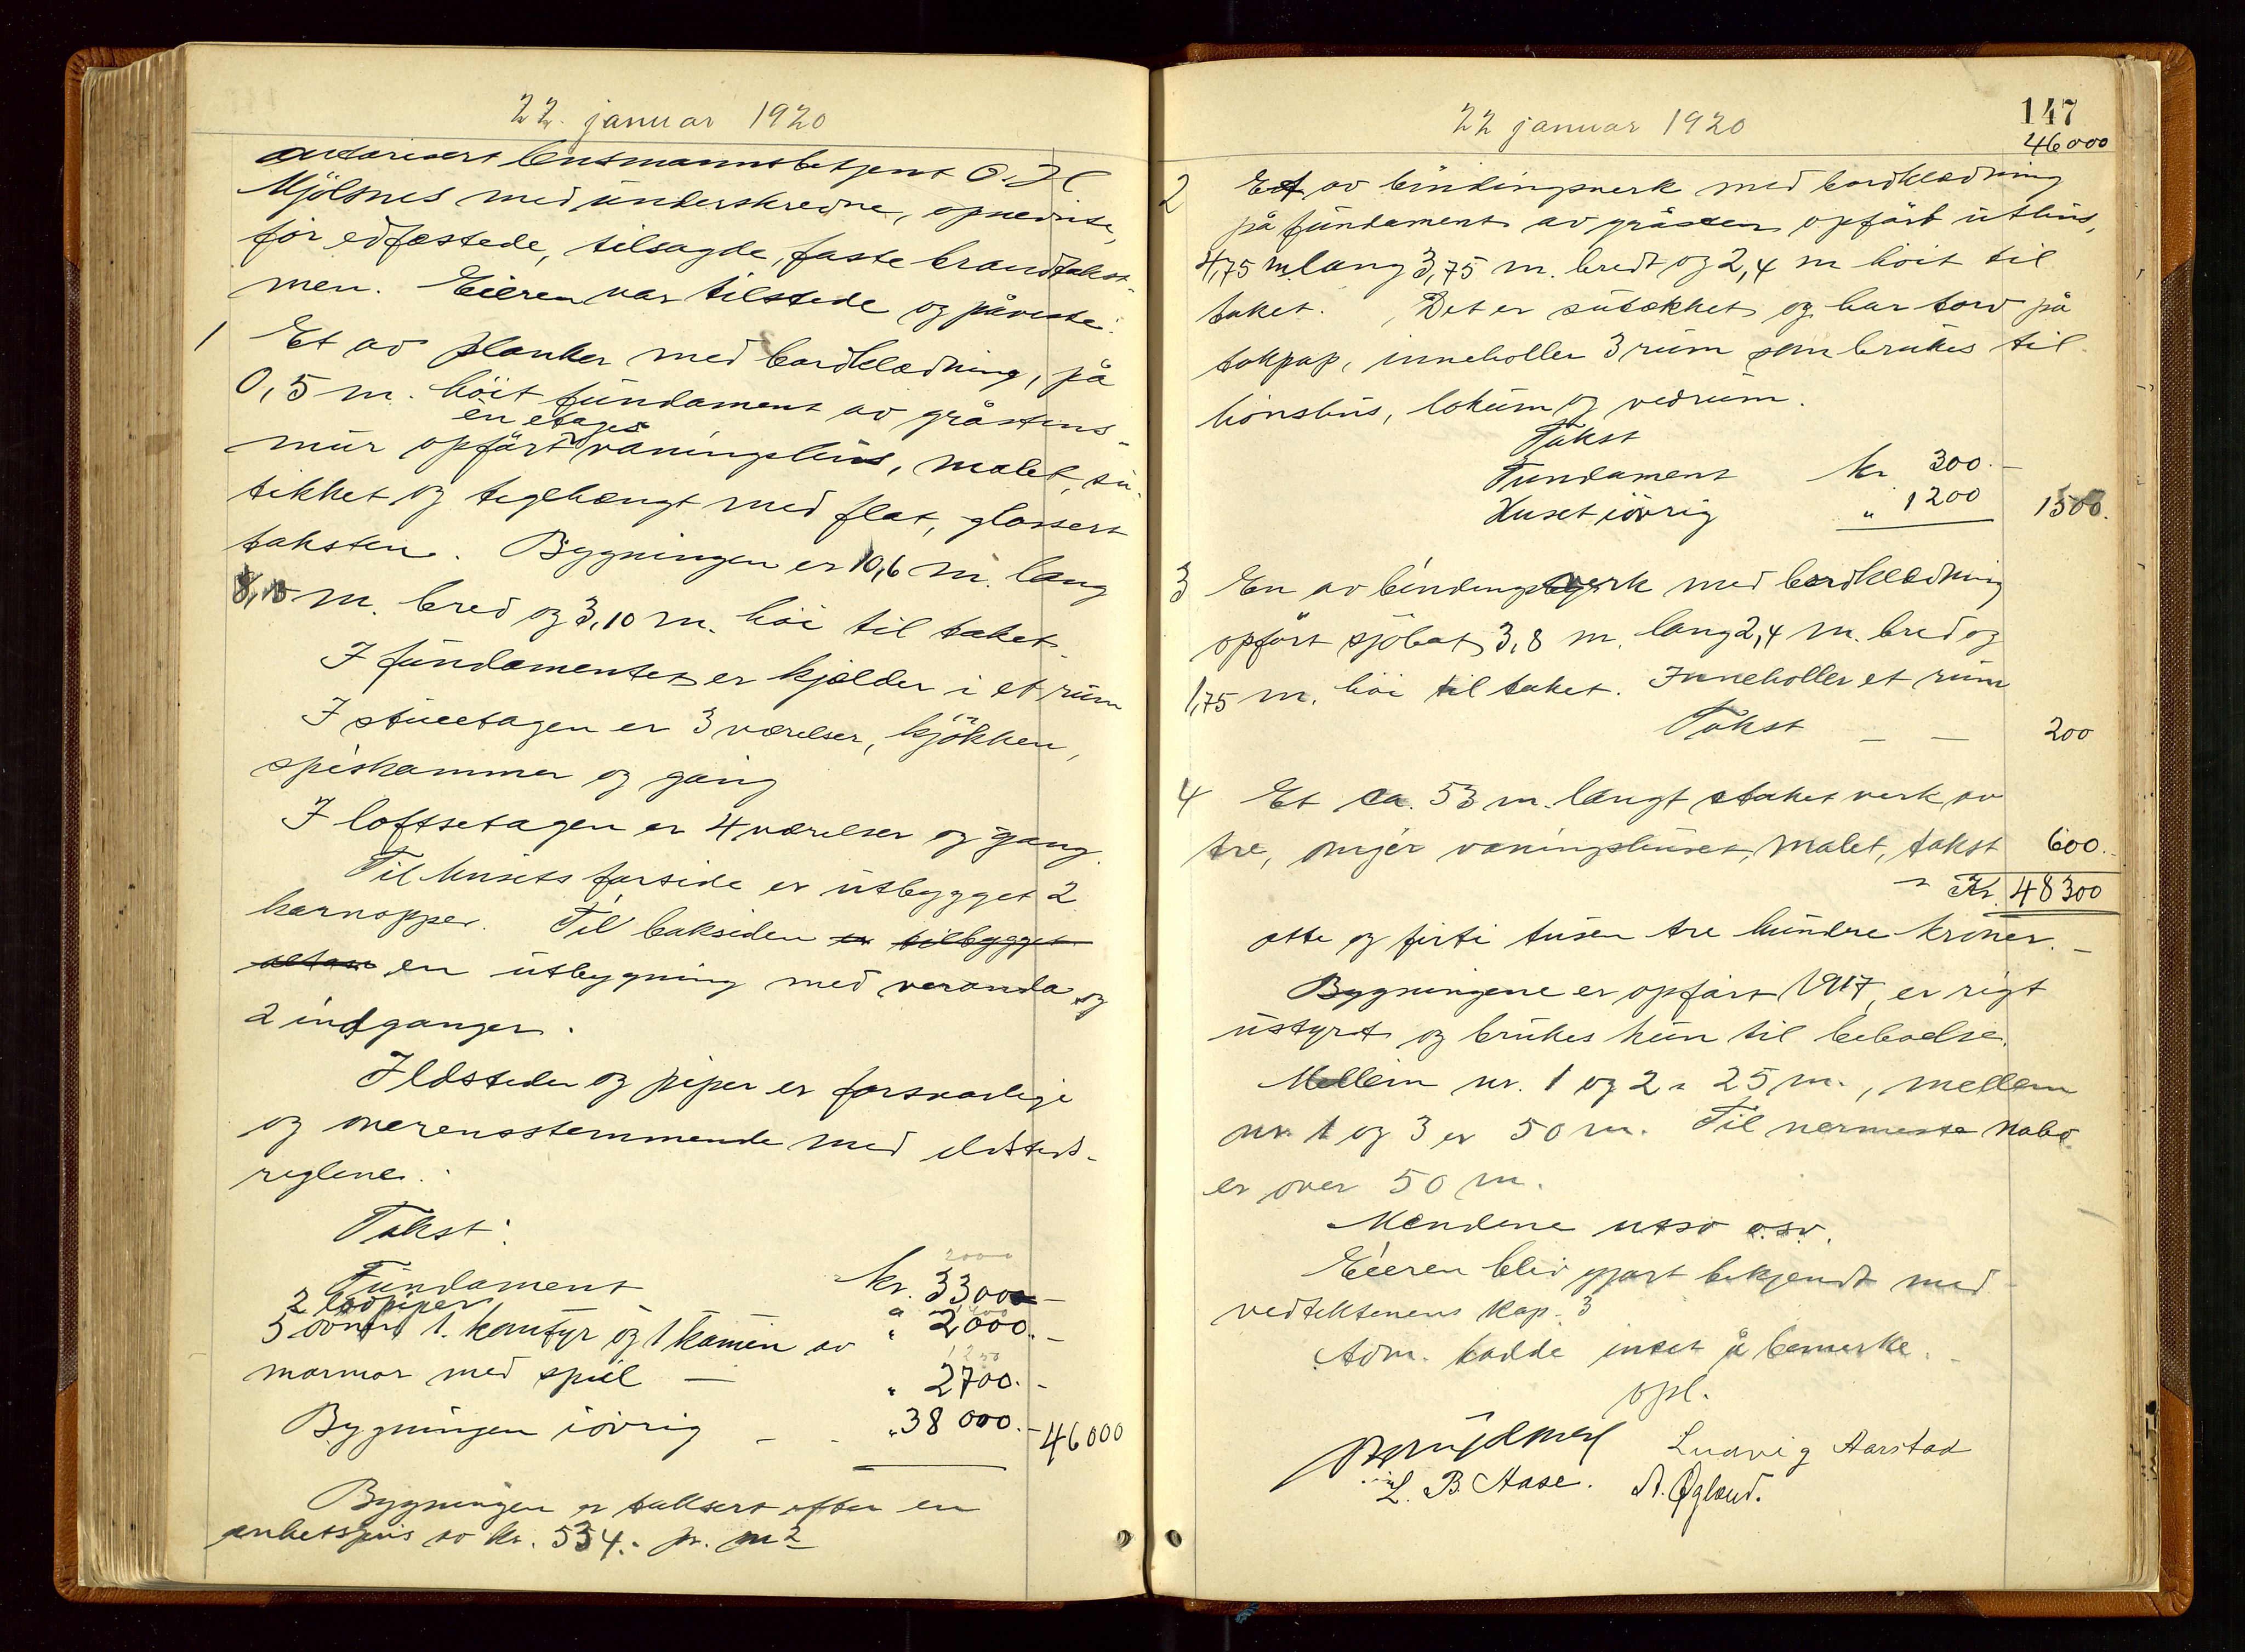 22. januar 1920
autorisert lensmannsbetjent O. H
Mjölsnes med underskrevne, opnevnte,
för edfæstede, tilsagde, faste brandtakst-
men. Eieren var tilstede og påviste:
1 Et av planker med bordklædning, på
0,5 m. höit fundament av gråstens-
en etages
mur opfört vaningshus, malet, su-
tekket og teglhængt med flat, glassert
taksten. Bygningen er 10,6 m. lang
m. bred og 3,10 m. höi til taket.
I fundamentet er kjælder i et rum
I stueetagen er 3 værelser, kjökken,
spiskammer og gang
I loftsetagen er 4 værelser og gang.
Til husets forside er utbygget 2
karnapper. Til baksiden er tilbygget
altan en utbygning med veranda og
2 indganger.
Ildsteder og piper er forsvarlige
og overensstemmende med ildsteds-
reglene.
Takst:
2000
Fundament kr. 3300 -
2 lodpiper " 2000. -
5 ovner 1. komfyr og 1 kamin av
1250
marmor med speil - " 2700. -
Bygningen iövrig - - " 38 000. - 46000
Bygningen er taksert efter en
enhetspris av kr. 534.- pr. m2
22 januar 1920
147
46000
2 Et av bindingsverk med bordklædning
på fundament av gråsten opfört uthus,
4,75 m. lang 3,75 m. bredt og 2,4 m höit til
taket. Det er sutækket og har torv på
takpap, inneholler 3 rum som brukes til
hönshus, lokum og vedrum.
Takst
Fundament kr 300.-
Huset iövrig " 1200 1500.
3 En av bindingsverk med bordklædning
opfört sjöbod 3,8 m. lang 2,4 m. bred og
1,75 m. höi til taket. Inneholler et rum
Takst - - 200
4 Et ca. 53 m. langt stakitverk av
tre, omgir vaningshuset, malet, takst 600.-
Kr. 48300
otte og firti tusen tre hundre kroner. -
Bygningene er opfört 1917, er rigt
ustyrt og brukes kun til beboelse.
Mellem nr. 1 og 2 25 m., mellem
nr. 1 og 3 er 50 m. Til nermeste nabo
er over 50 m.
Mendene utsv o.s.v.
Eieren blev gjort bekjendt med
vedtektenens kap. 3
Adm. hadde intet å bemerke. -
opl.
Ludvig Aarstad
L. B. Aase. A. Øglænd.